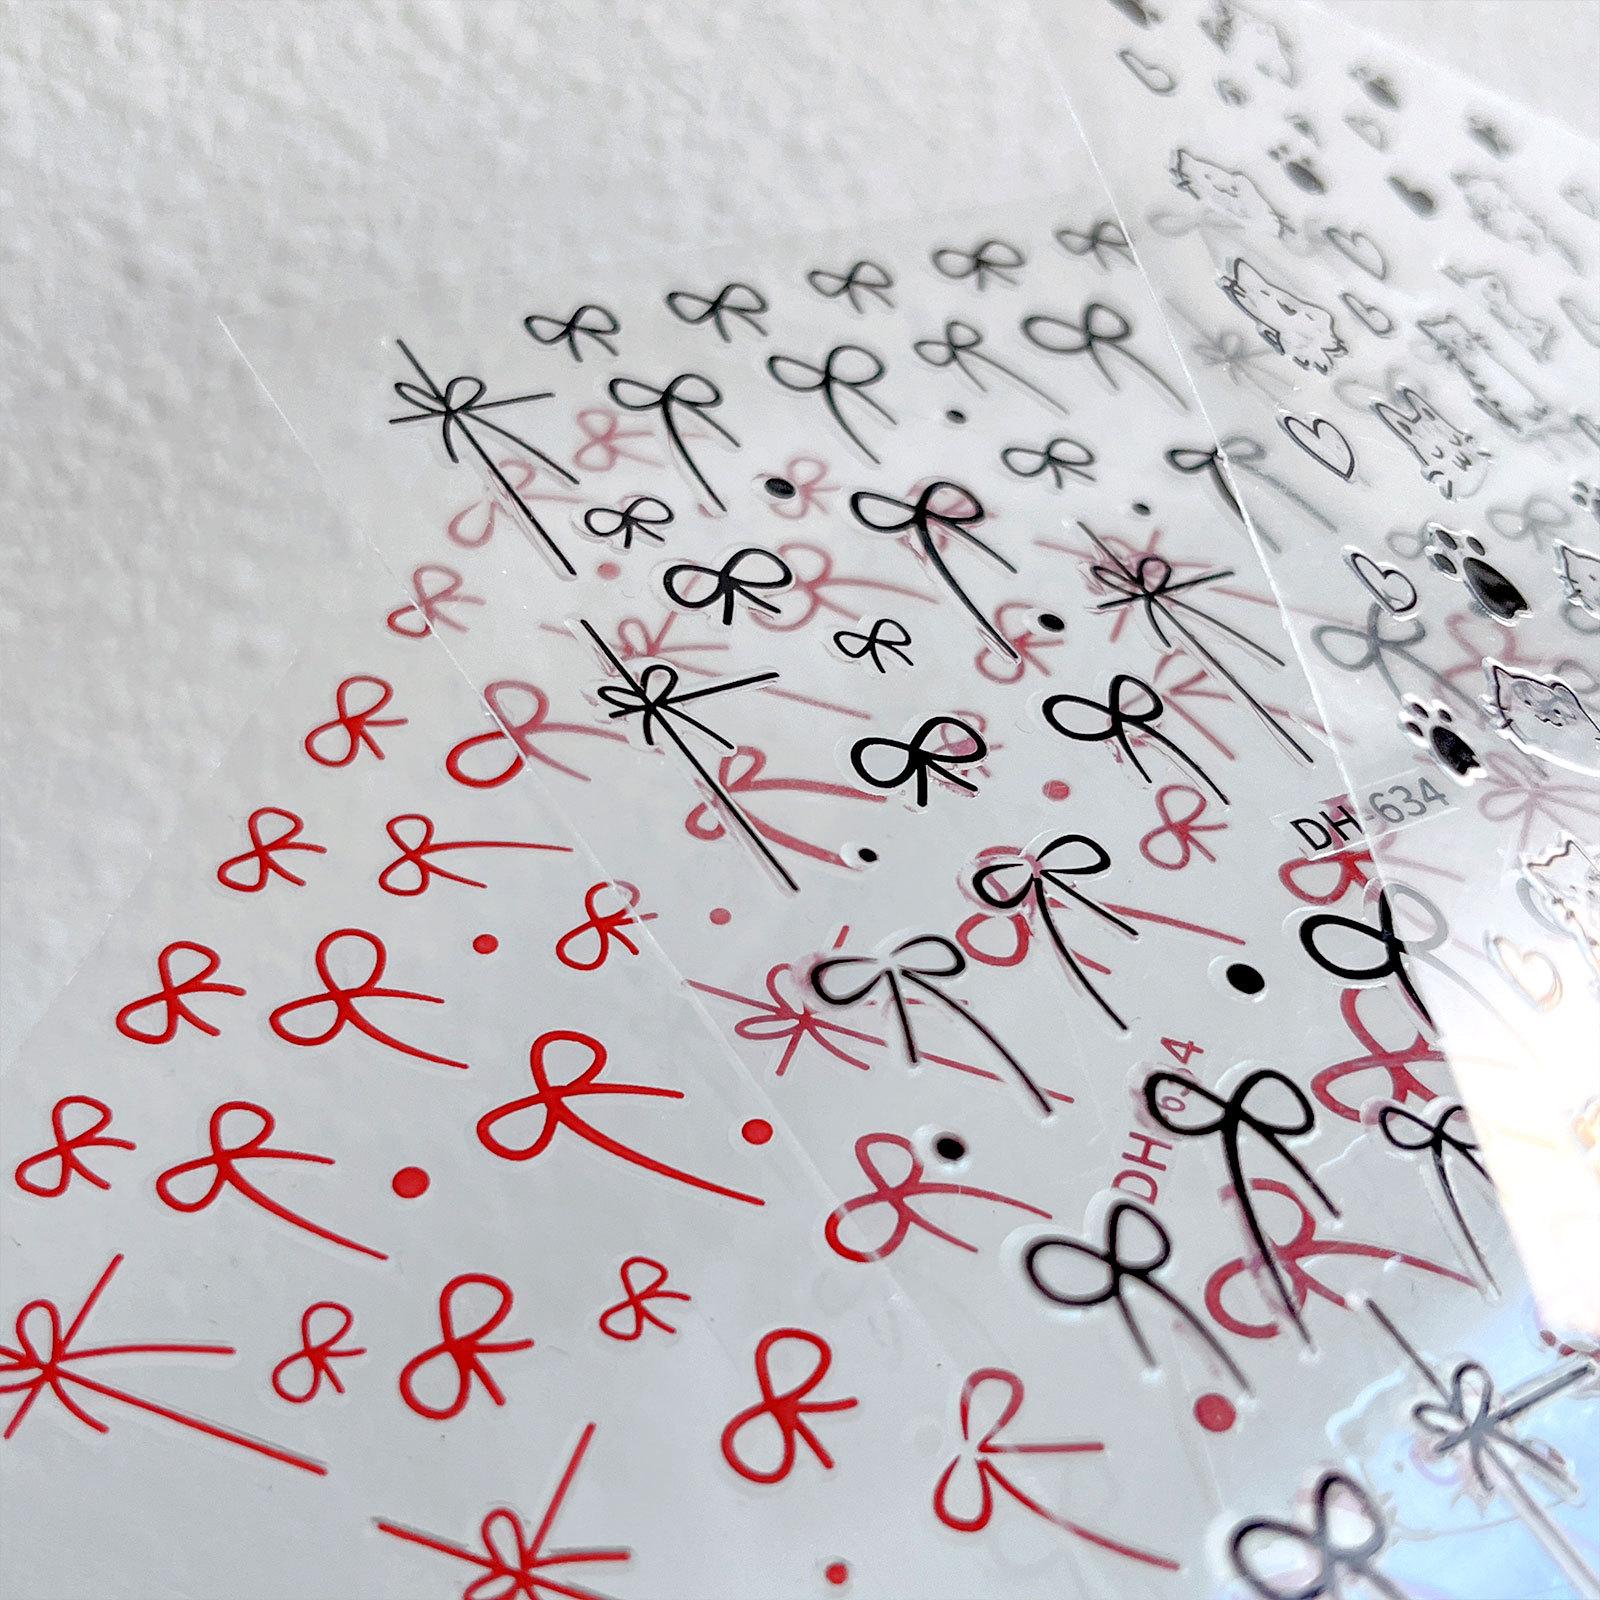 DH-634
DH-634